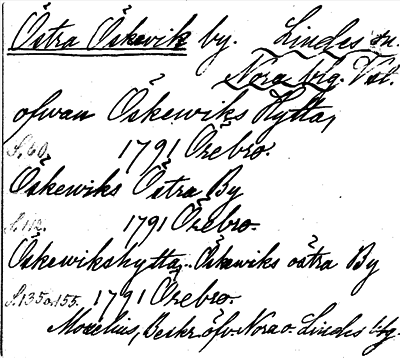 Östra Öskevik by. Lindes sn.
Nora blg. Vstl.
ofwan Öskewiks Hytta,
S. 60. 1791 Örebro.
Öskewiks Östra By
S. 112. 1791 Örebro.
Öskewikshytta, Öskewiks östra By
S. 135 o. 155. 1791 Örebro.
Moxelius, Beskr. öfv. Nora o. Lindes btg.